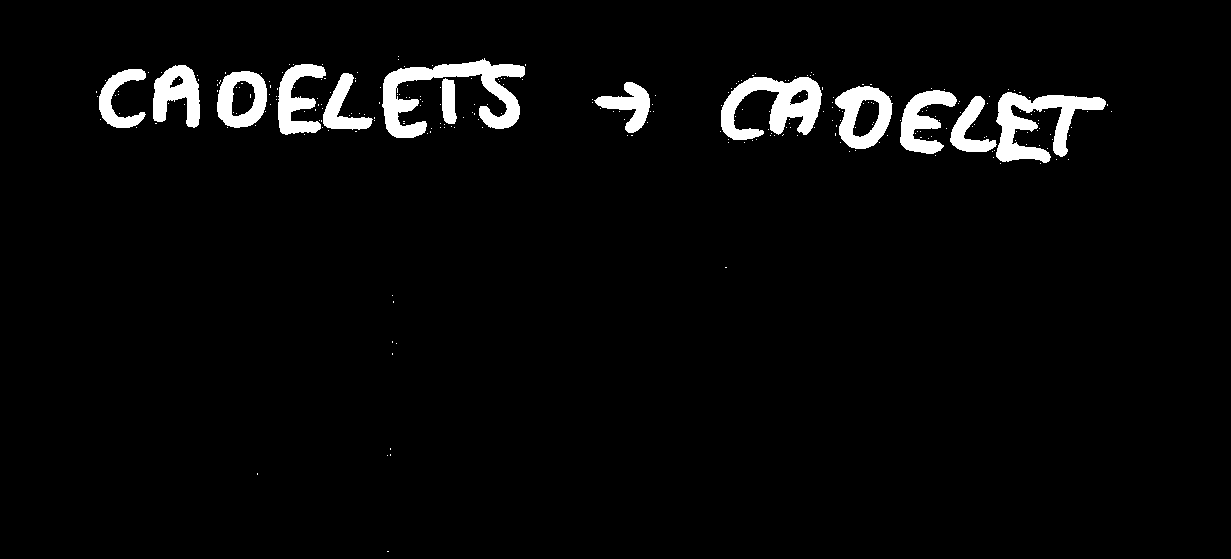 CADELETS → CADELET